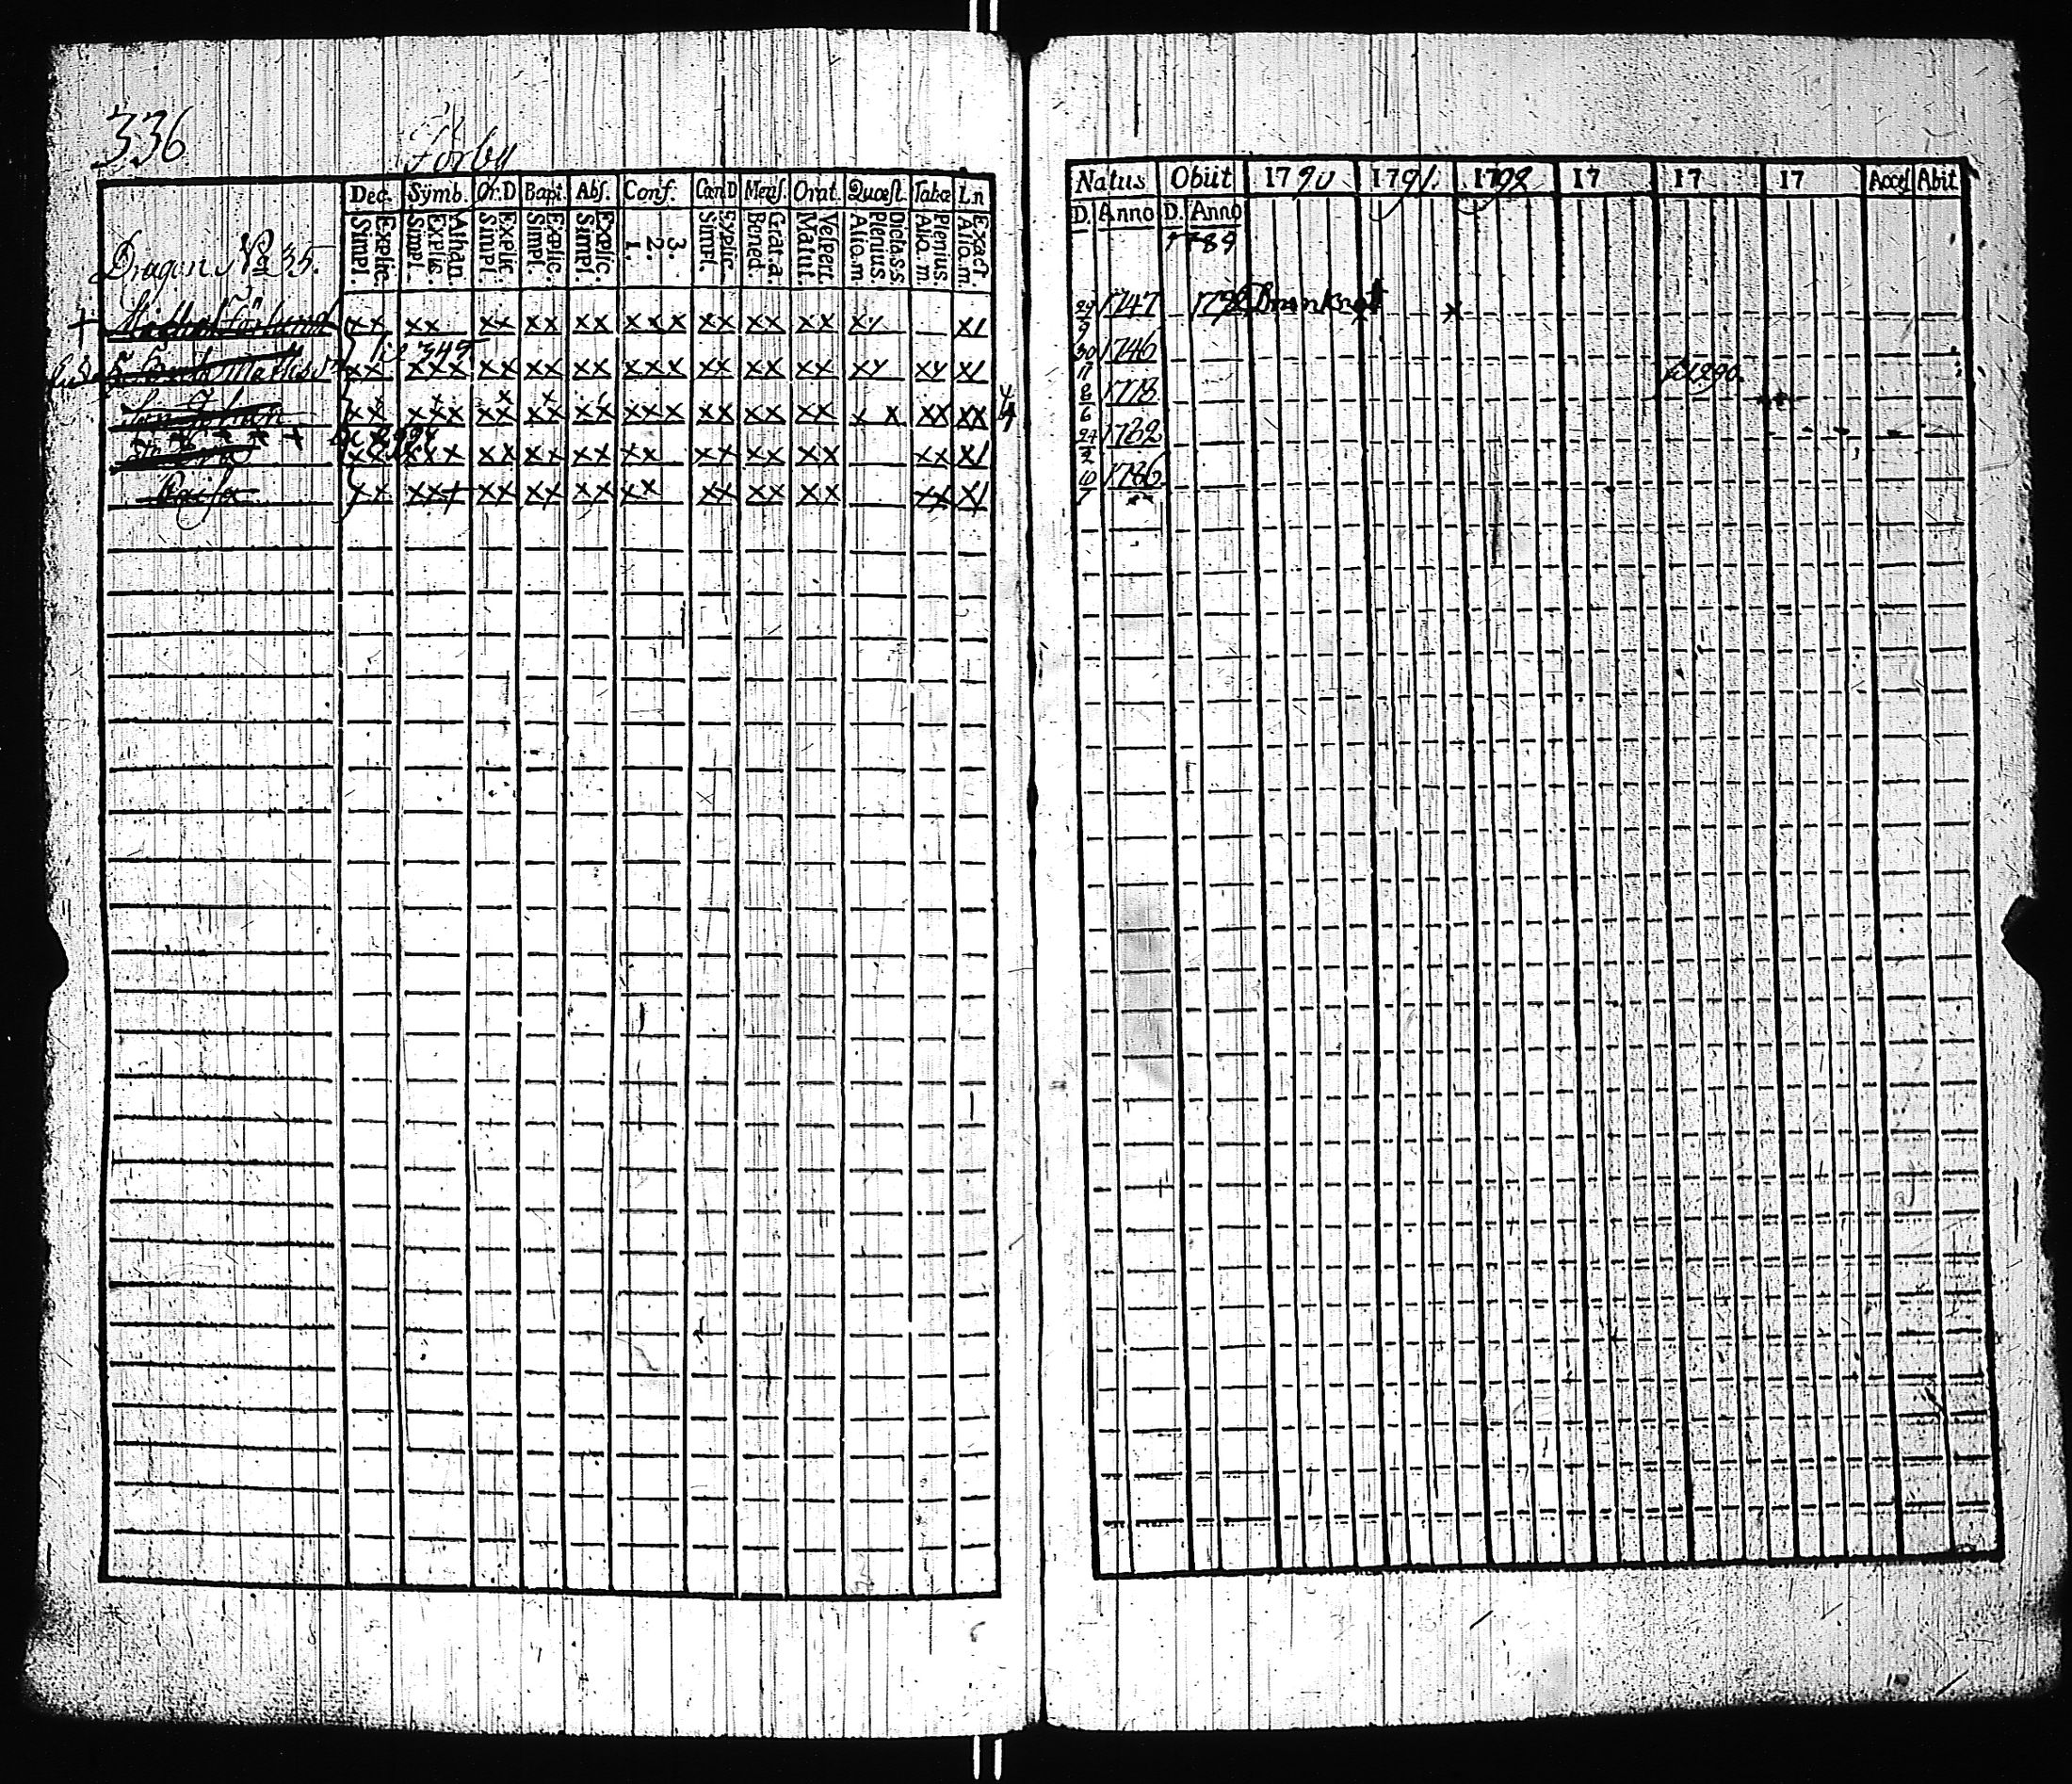 336
Förby
Dec. Symb. Or.D Bapt. Abs. Conf. Can D Mens. Orat. Quæst. Tabæ Ln
Simpl. Explic. Simpl. Explic. Athan. Simpl. Explic. Simpl. Explic. Simpl. Explic. 1. 2. 3. Simpl. Explic. Bened. Grat.a. Matut. Vespert. Alio.m Plenius Dicta.s.s. Alio.m Plenius. Alio.m. Exact
Dragon No 35.
+ Michel Förbund xx xx xx xx xx xxx xx xx xx xy x1
til 345
xx xxx xx xx xx xxx xx xx xx xy xy x1
Son Johan xx xxx xx xx xx xxx xx xx xx x x xx xx
xx xxx xx xx xx xx xx xx xx xx x1
Caisa xx xxx xx xx xx xx xx xx xx xx x1
Natus Obiit 1790 1791. 1792 17 17 17 Acces Abit
D. Anno D. Anno
1789
29 9 1747 1792 x
30 11 1746
8 6 1778
24 2 1782
10 7 1786